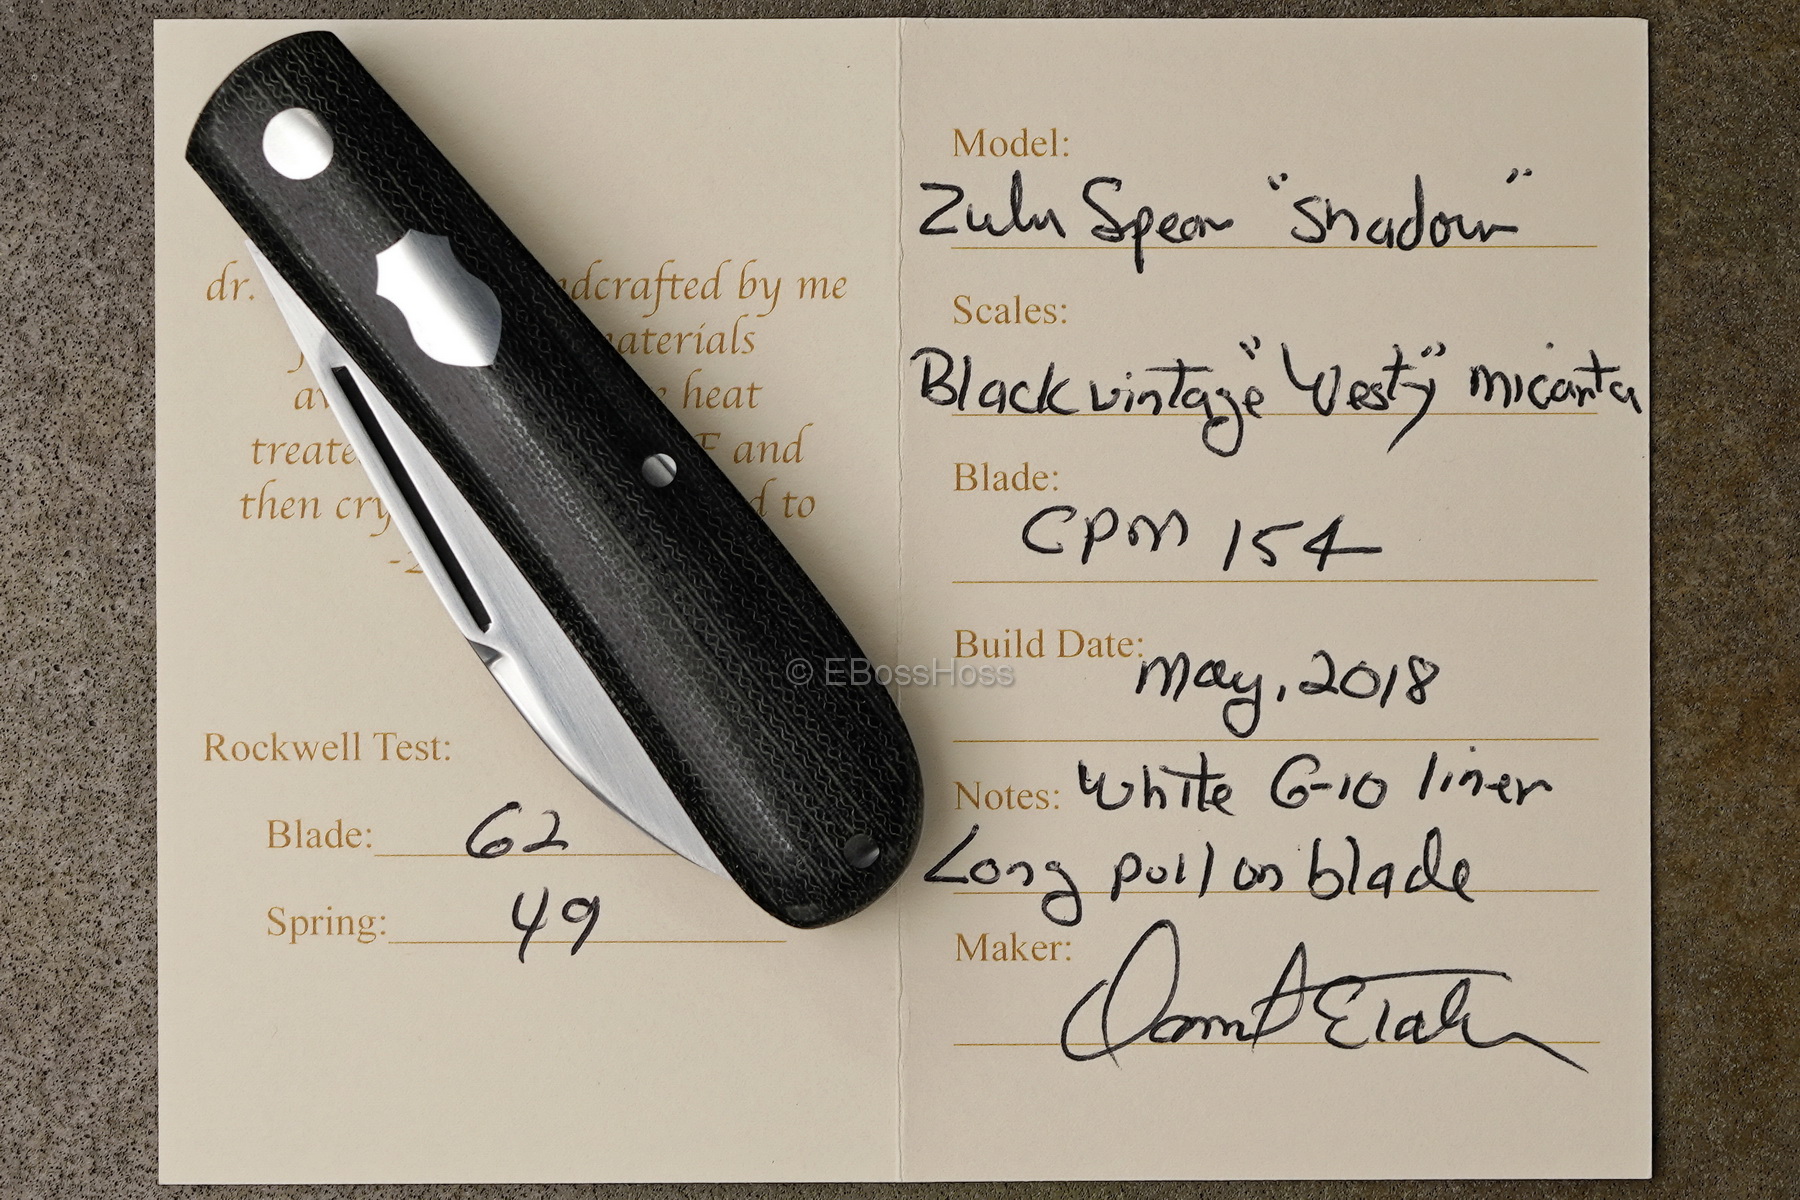 dr. ndcrafted by me
aterials
av e heat
treate F and
then cry d to
Rockwell Test:
Blade: 62
Spring: 49
Model:
Zulu Spear "Shadow"
Scales:
Black vintage "Westy" micarta
Blade:
CPM 154
Build Date: May, 2018
Notes: White G-10 liner
Long pull on blade
Maker:
© EBossHoss